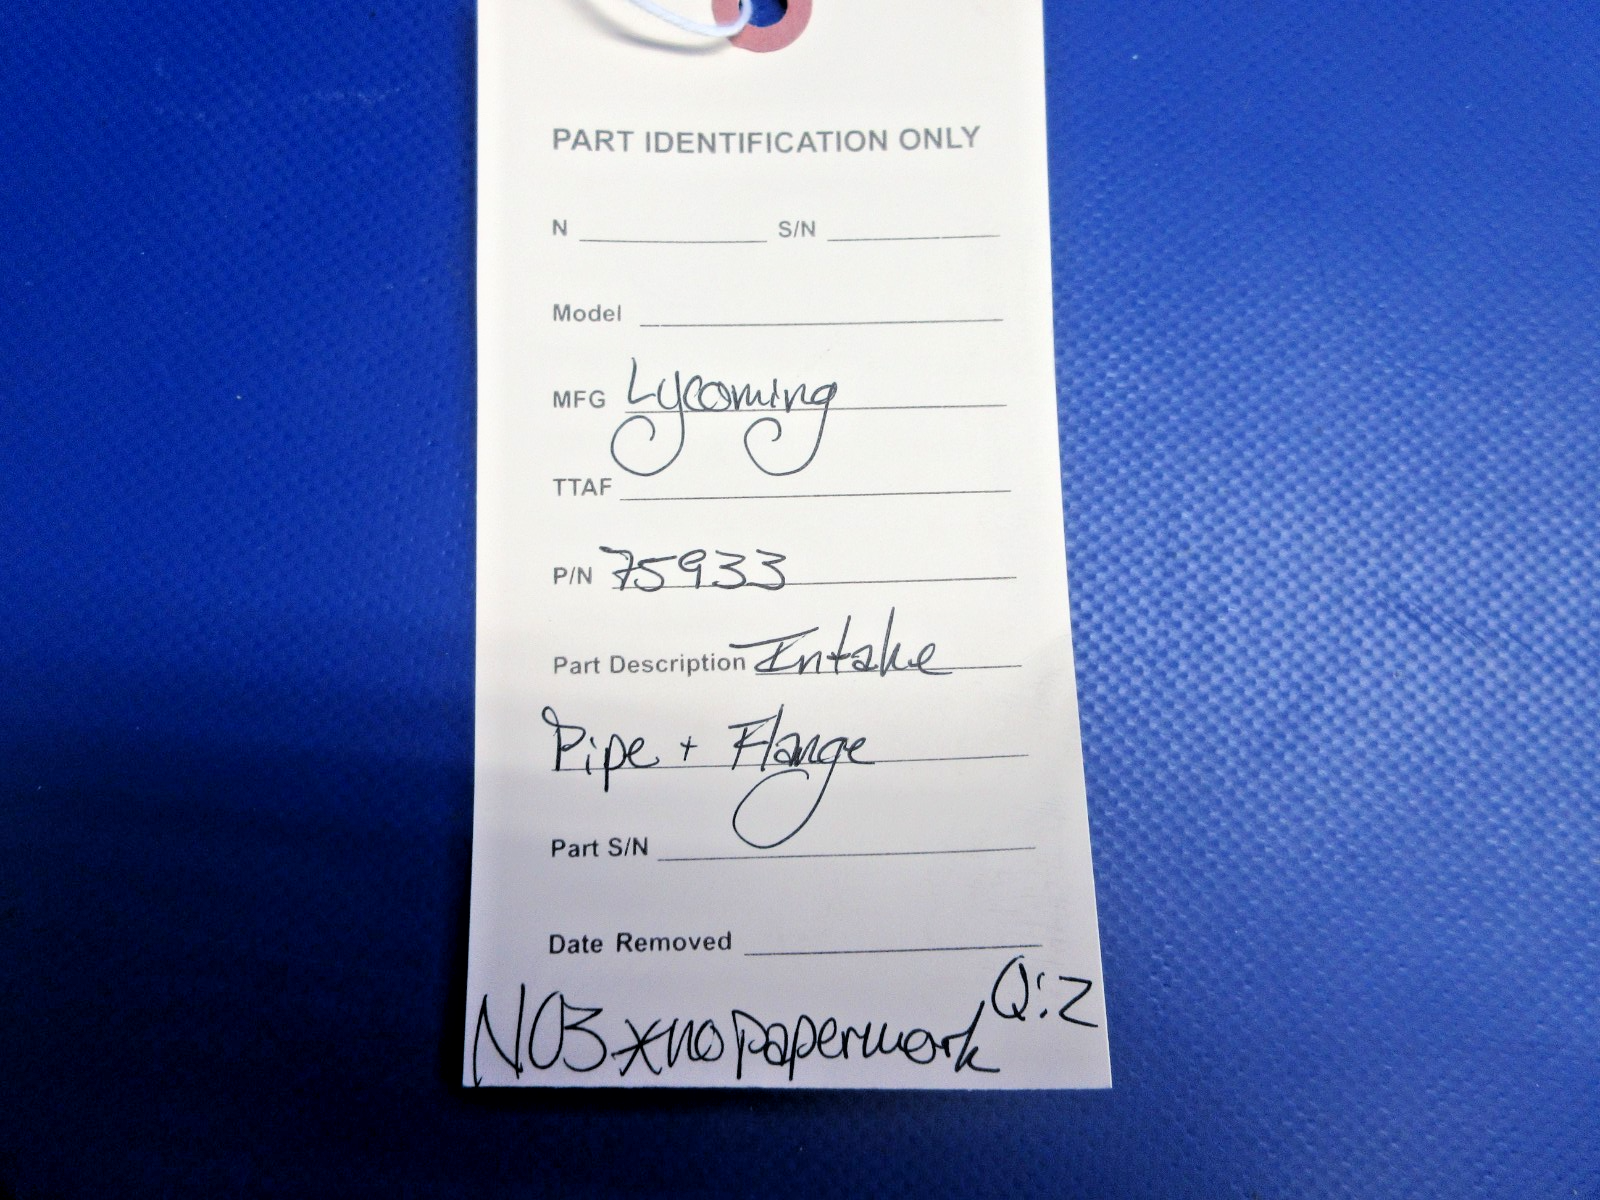 PART IDENTIFICATION ONLY
N S/N
Model
MFG Lycoming
TTAF
P/N 75933
Part Description Intake
Pipe + Flange
Part S/N
Date Removed
Q:2
NO3 *no paperwork